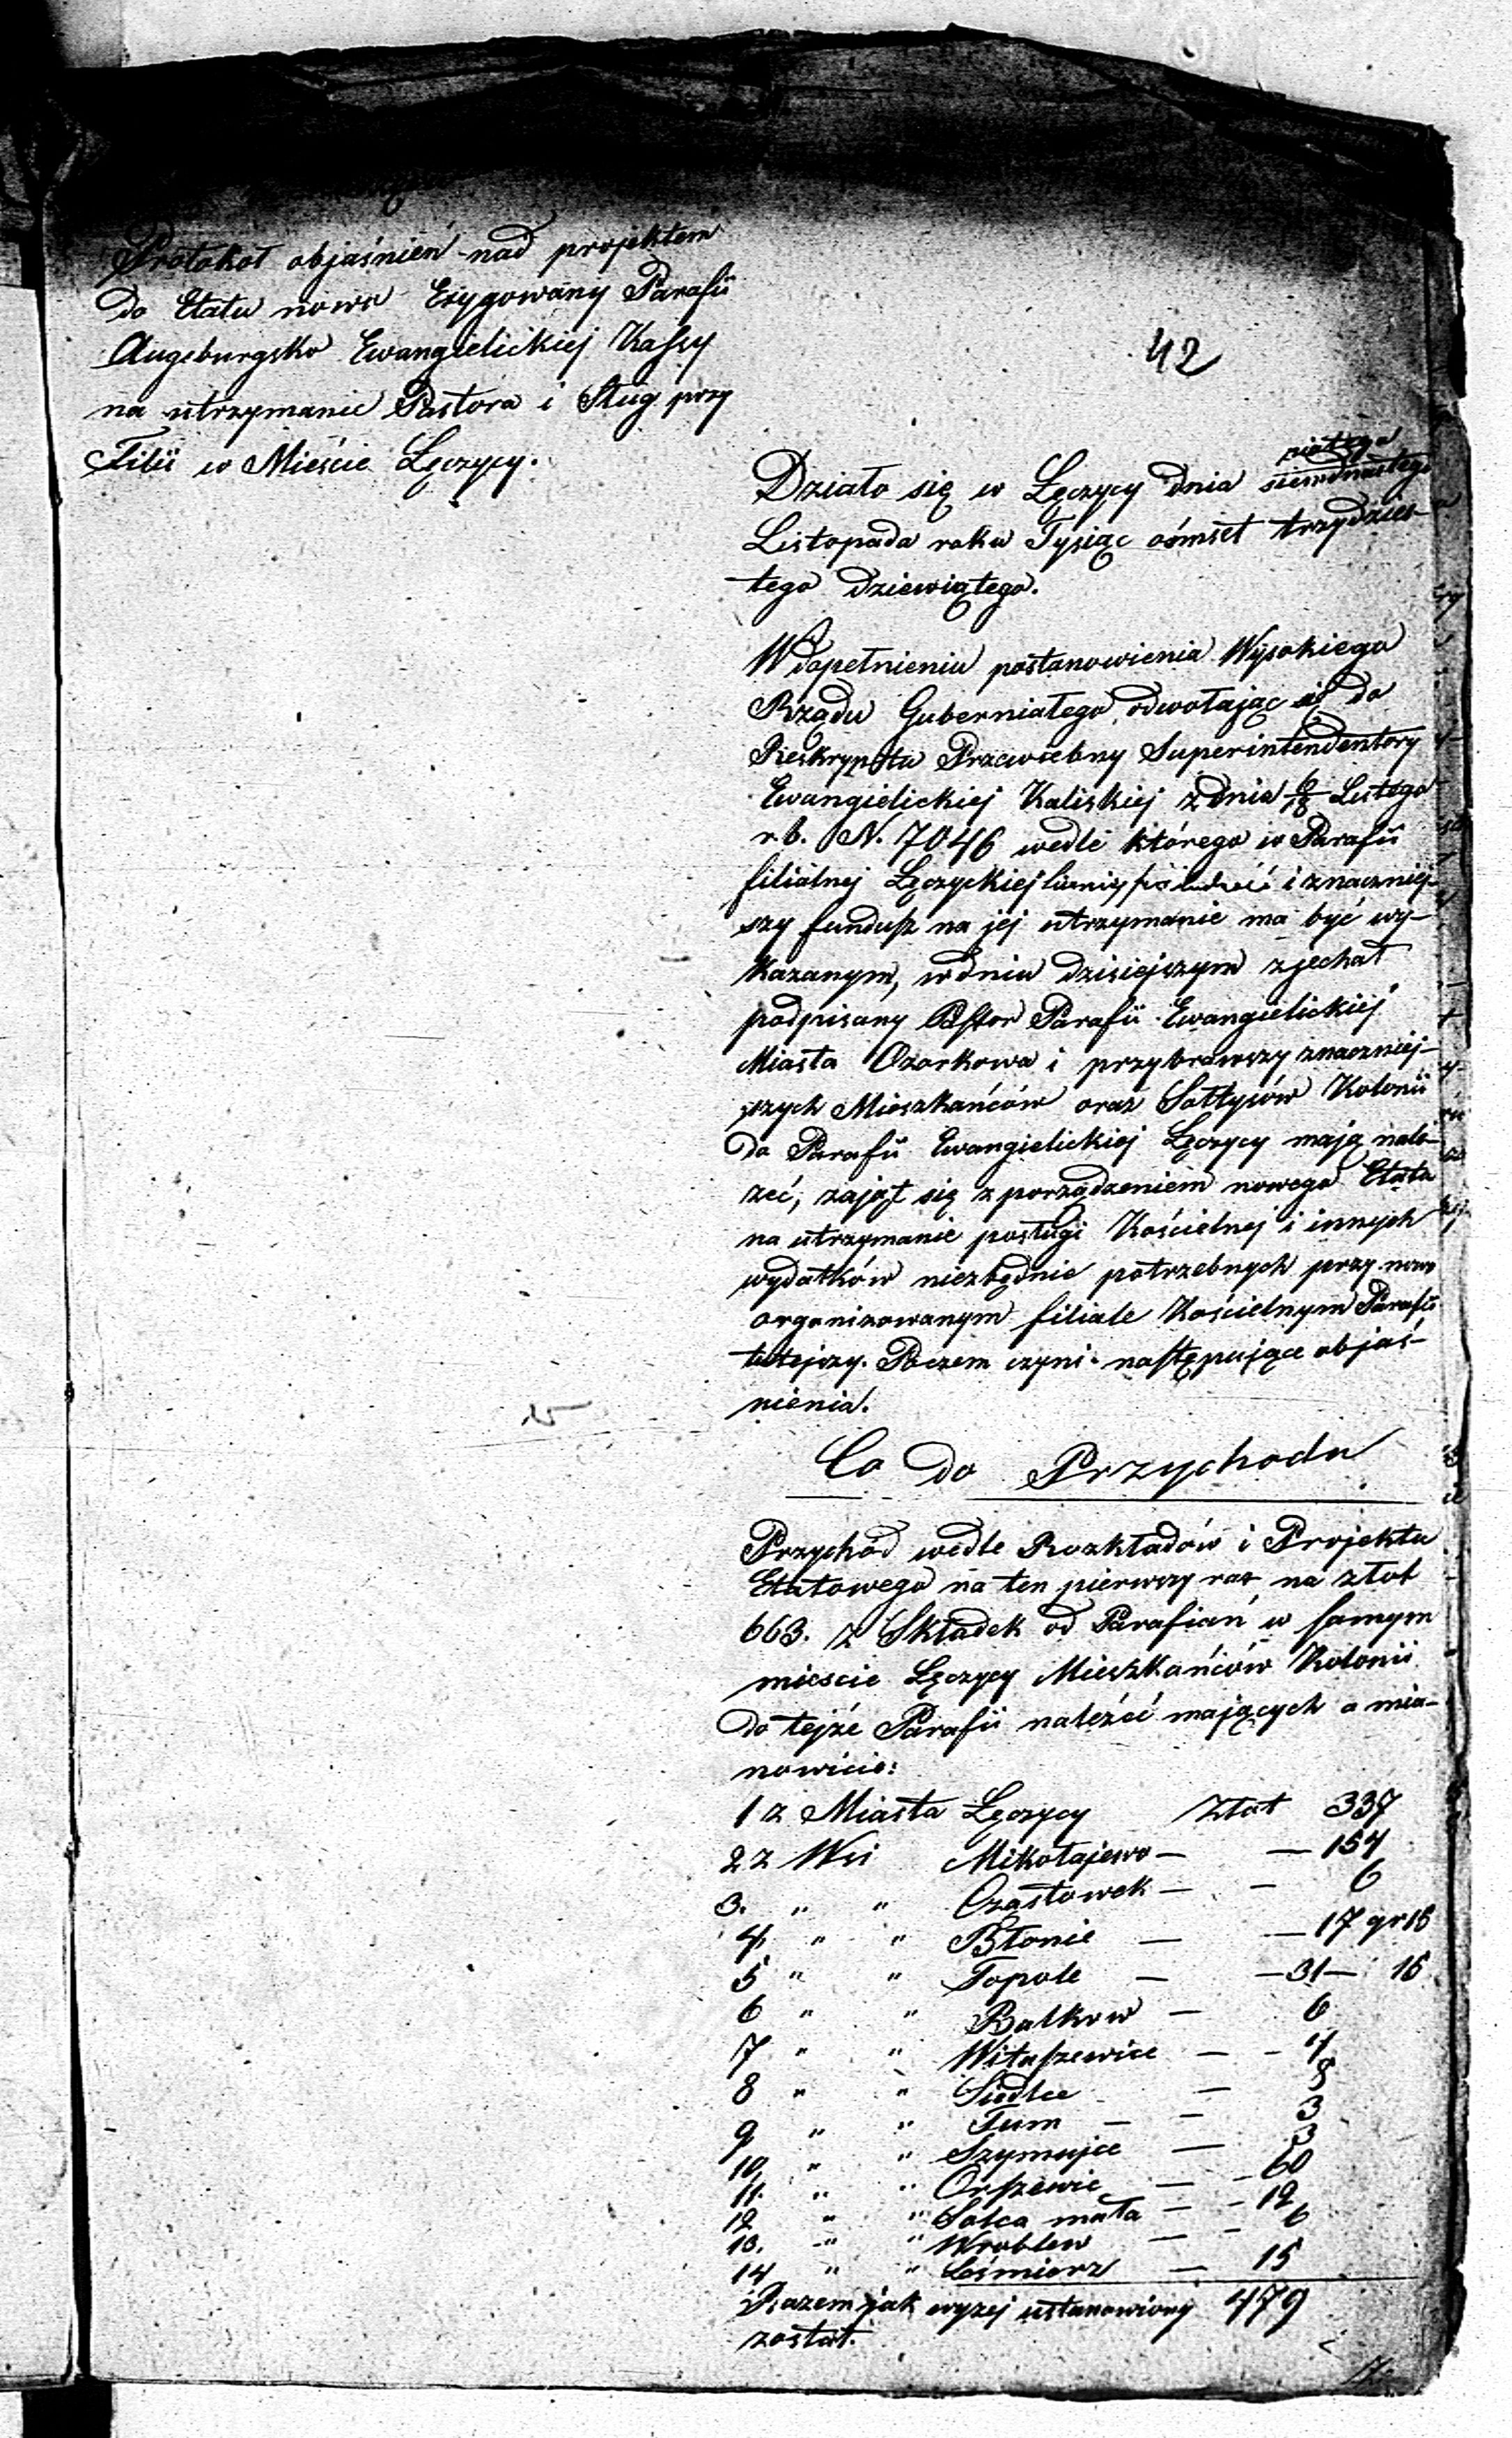 Protokoł objaśnień nad projektem
do Etatu nowo Erygowany Parafii
Augsburgsko Ewangielickiej Kassy
na utrzymanie Pastora i Sług przy
Filii w Mieście Łęczycy.
42
piątego
Działo się w Łęczycy dnia siedmnastego
Listopada roku Tysiąc ośmset trzydzies-
tego dziewiątego.
W dopełnieniu postanowienia Wysokiego
Rządu Guberniałego, odwołając się do
Reskryptu Przewiebny Superintendentory
Ewangielickiej Kaliskiej z dnia Lutego
r.b. N. 7046 wedle którego w Parafii
filialnej Łęczyckiej i znaczniej-
szy fundusz na jej utrzymanie ma być wy-
kazanym, w dniu dzisiejszym zjechał
podpisany Pastor Parafii Ewangielickiej
Miasta Ozorkowa i przybrawszy znaczniej-
szych Mieszkańców oraz Sołtysów Kolonii
do Parafii Ewangielickiej Łęczycy mają nale-
żeć, zajął się z porządzeniem nowego Etatu
na utrzymanie posługi Kościelnej i innych
wydatków niezbędnie potrzebnych przy nowo
organizowanym filiale Kościelnym Parafii
tutejszy. Poczem czyni następujące objaś-
nienia.
Co do Przychodu
Przychód wedle Rozkładów i Projektu
Etatowego na ten pierwszy raz na złot
663. z Składek od Parafian w samym
miescie Łęczycy Mieszkańców Kolonii
do tejże Parafii należeć mających a mia-
nowicie:
1 z Miasta Łęczycy Złot 337
2 z Wsi Mikołajewo — — 154
3. " " Czastowek — — 6
4 " " Błonie — — 17 gr 15
5 " " Topole — — 31 — 15
6 " " Balkow — 6
7 " " Witaszewice — — 4
8 " " Siedlce — 8
9 " " Tum — — 3
10, " " Szymujce — 3
11. " " Orszewie — — 60
12 " " Solca mała — — 12
13. " " Wroblew — — 6
14 " " Leśmierz — 15
Razem jak wyzej ustanowiony 479
został.